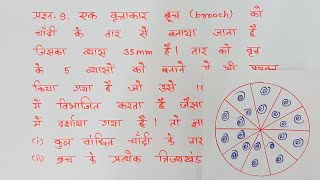 प्रश्न. 9. एक वृत्ताकार ब्रूच (brooch) को
चाँदी के तार से बनाया जाना है
जिसका व्यास 35mm है। तार को वृत्त
के 5 व्यासों को बनाने में भी प्रयुक्त
किया गया है जो उसे 10
में विभाजित करता है जैसा
में दर्शाया गया है। तो
(i) कुल वांछित चाँदी के तार
(ii) ब्रूच के प्रत्येक त्रिज्यखंड